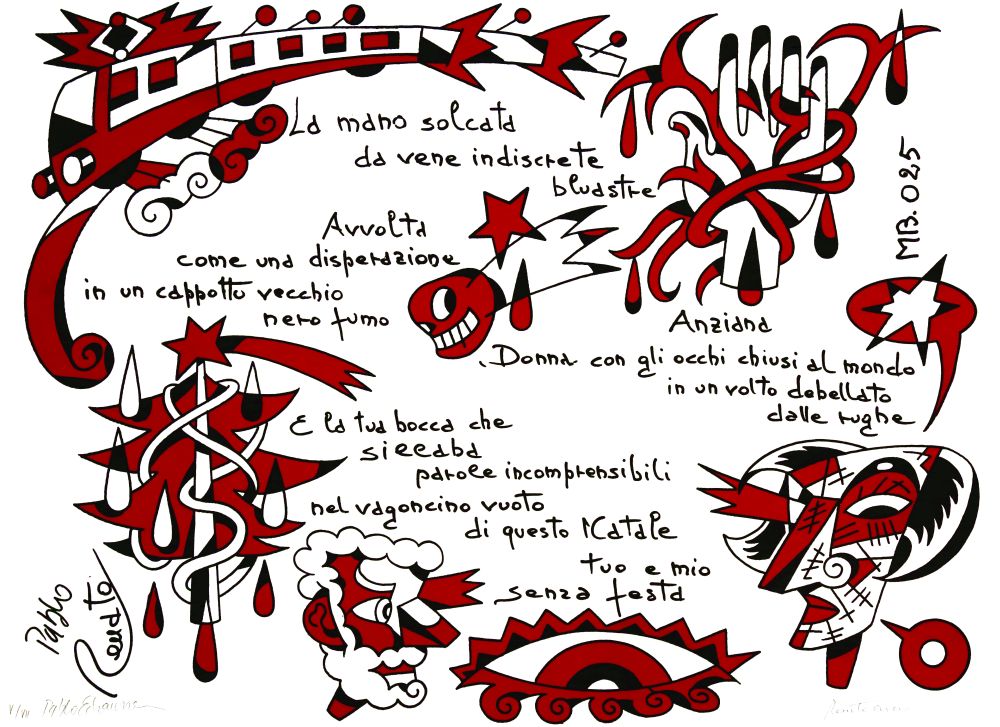 La mano solcata
da vene indiscrete
bluastre
MB.025
Avvolta
come una disperazione
in un cappotto vecchio
nero fumo
Anziana
Donna con gli occhi chiusi al mondo
in un volto debellato
dalle rughe
E la tua bocca che
sillaba
parole incomprensibili
nel vagoncino vuoto
di questo Natale
tuo e mio
senza festa
Pablo
Renato